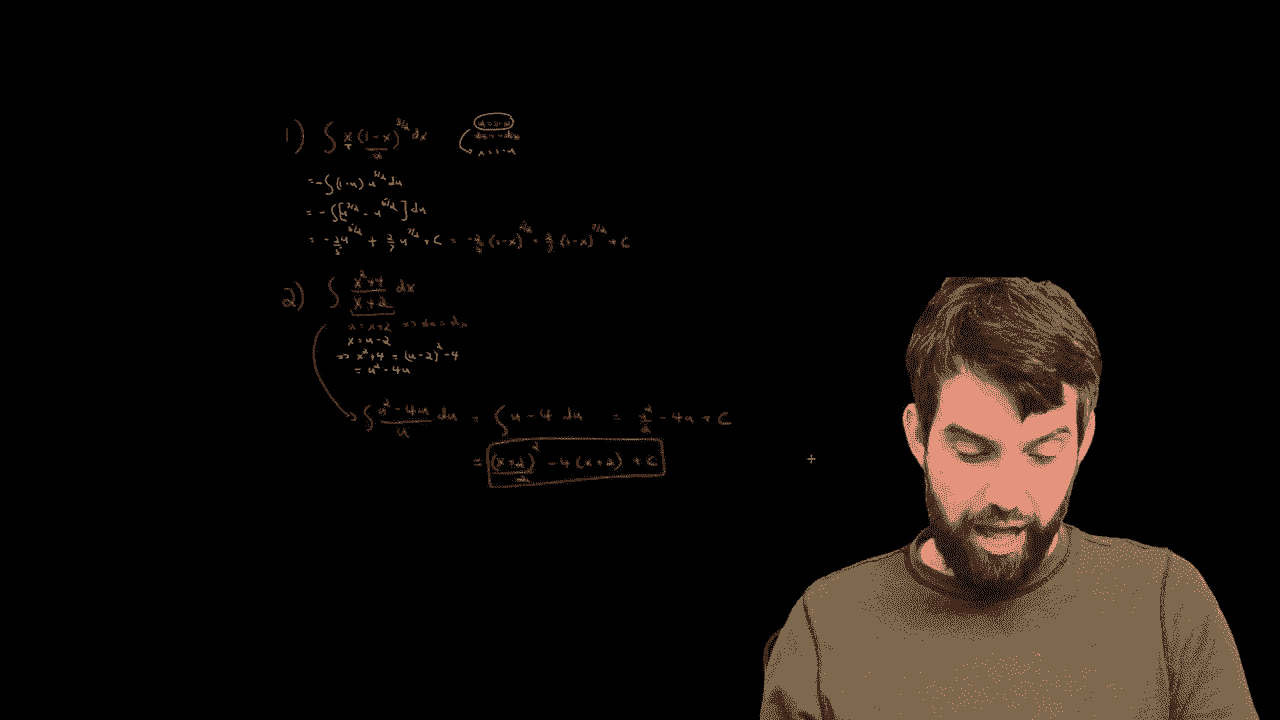 1) ∫ x (1-x)^{3/2} dx
u
u=1-x
du=-dx
x=1-u
= -∫(1-u) u^{3/2} du
= -∫[u^{3/2} - u^{5/2}] du
= -2/5 u^{5/2} + 2/7 u^{7/2} + C = -2/5 (1-x)^{5/2} + 2/7 (1-x)^{7/2} + C
2) ∫ (x²+4)/(x+2) dx
u=x+2 => du=dx
x=u-2
=> x²+4 = (u-2)²-4
= u²-4u
∫ (u²-4u)/u du = ∫ u-4 du = u²/2 - 4u + C
= (x+2)²/2 - 4(x+2) + C